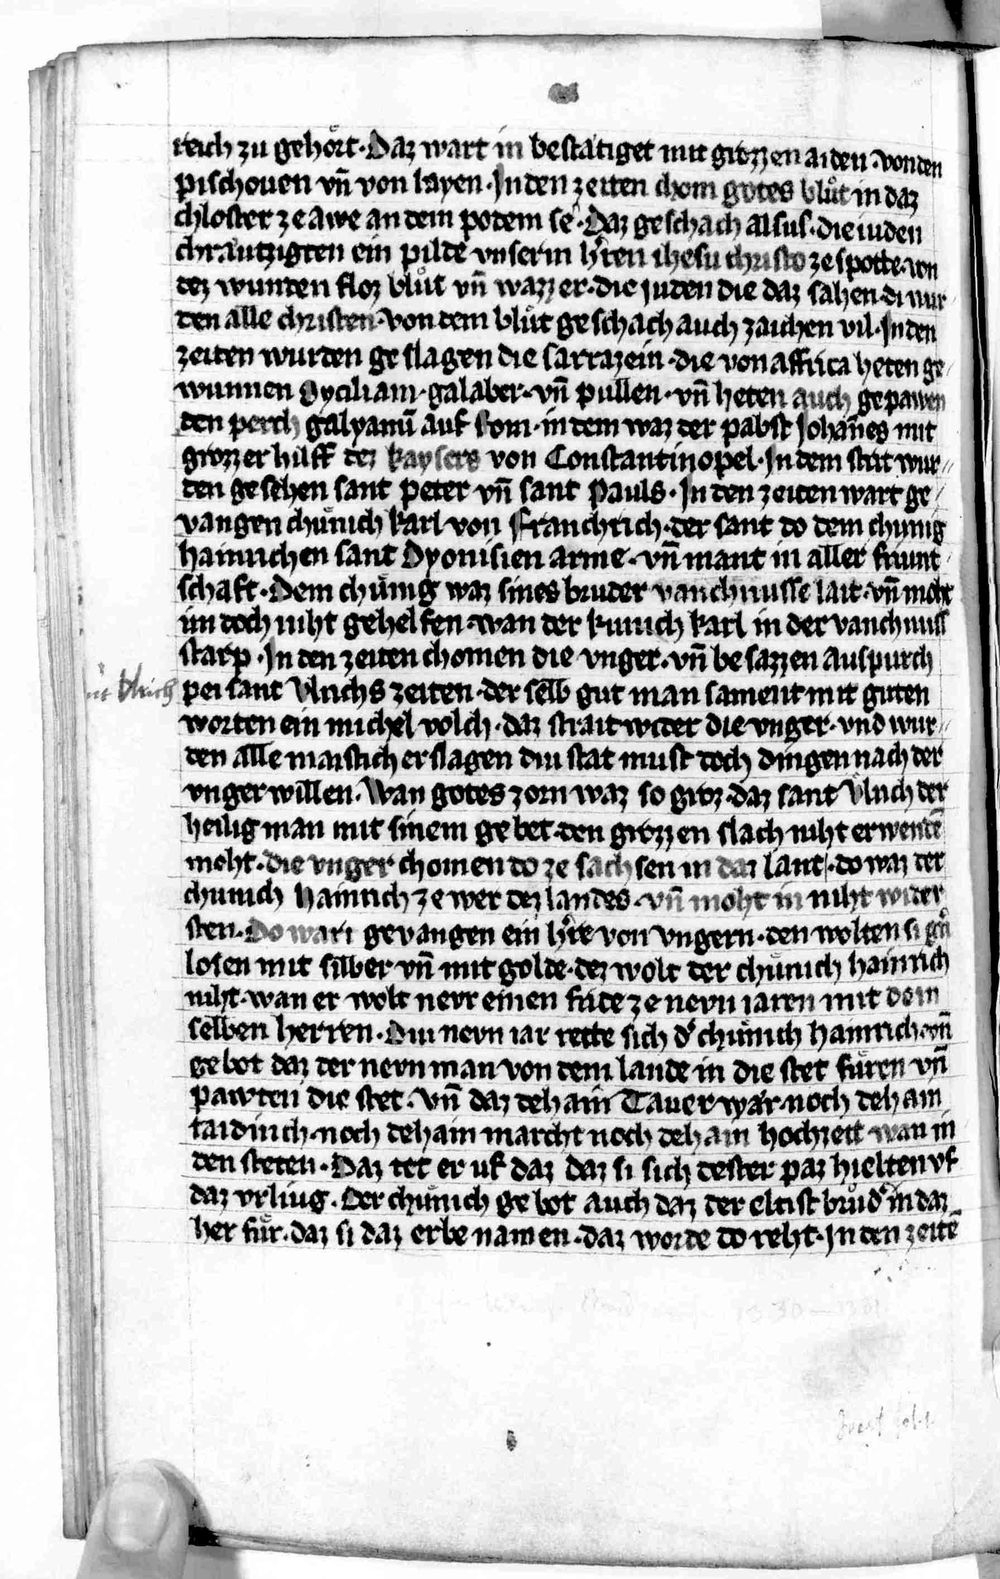 reich zu gehoͤrt · Daz wart in bestatiget mit grozzen aiden · von den
pischouen vn̄ von layen · In den zeiten chom gotes bluͦt in daz
chloster ze awe an dem podem se · Daz geschach alsus · die iuden
chraͤutzigten ein pilde vnserm h̾ren ihesu christo ze spotte · von
dez wunden floz bluͦt vn̄ wazzer · die juden die daz sahen · di wur
den alle christen · von dem bluͦt geschach auch zaichen vil · In den
zeiten wurden geslagen die sarrazein · die von affrica heten ge
wunnen Syciliam · galaber · vn̄ pullen · vn̄ heten auch gepawen
den perch galyanū auf Rom · in dem waz der pabst Johan̄es mit
grozzer hilff dez kaysers von Constantinopel · In dem strit wur
den gesehen sant peter vn̄ sant Pauls · In den zeiten wart ge
vangen chuͤnich karl von Franchrich · der sant do dem chunig
hainrichen sant Dyonisien arme · vn̄ mant in aller friunt
schaft · Dem chuͤnig waz sines bruder vanchnusse lait · vn̄ moht
im doch niht gehelfen · wan der kunich karl in der vanchnuss
starp · In den zeiten chomen die vnger · vn̄ besazzen auspurch
pei sant Vlrichs zeiten · der selb gut man sament mit guten
worten ein michel volch · daz strait wider die vnger · vnd wur
den alle maistich erslagen diu stat must doch dingen nach der
vnger willen · Wan gotes zorn waz so groz · daz sant Vlrich der
heilig man mit sinem gebet · den grozzen slach niht erwendē
moht · die vnger chomen do ze sachsen in daz lant · do waz der
chunich Hainrich ze wer dez landes · vn̄ moht in niht wider
sten · Do wart gevangen ein h̾re von vngern · den wolten si
losen mit silber vn̄ mit golde · dez wolt der chuͤnich hainrich
niht · wan er wolt nevr einen fride ze nevn iaren mit dem
selben herren · Diu nevn iar rette sich d̾ chuͤnich hainrich · vn̄
gebot daz der nevn man von dem lande in die stet fuͤren vn̄
pawten die stet · vn̄ daz dehain Tauer waͤr · noch dehain
taidinch · noch dehain marcht noch dehain hochzeit wan in
den steten · Daz tet er uf daz daz si sich dester paz hielten vf
daz vrliug · Der chuͤnich gebot auch daz der eltist bruͦd̾ in daz
her fuͤr · daz si daz erbe namen · daz worde do reht · In den zeitē
Vlrich